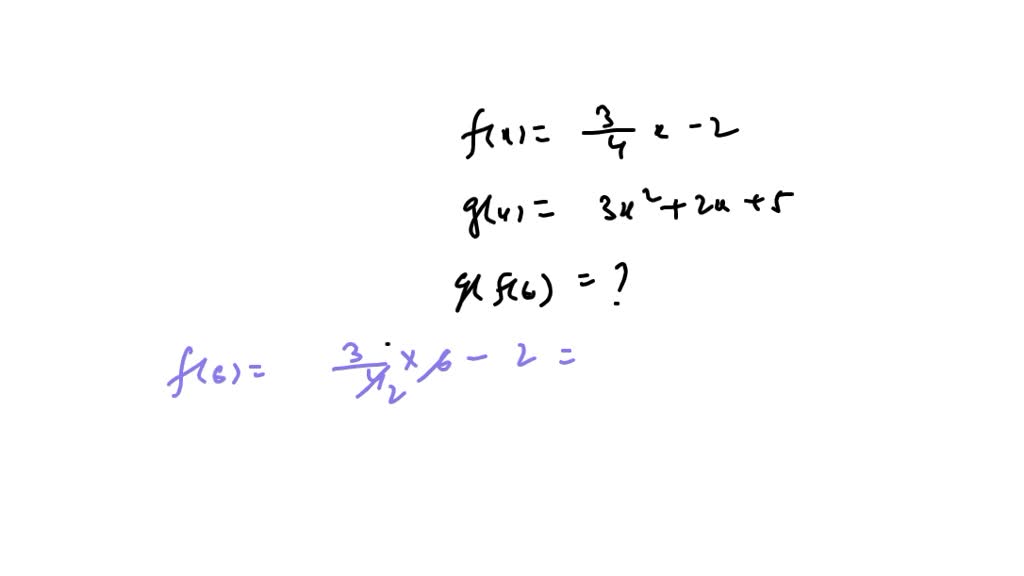 f(x) = 3/4 x - 2
g(x) = 3x² + 2x + 5
g(f(6) = ?
f(6) = 3/4 2 × 6 - 2 =